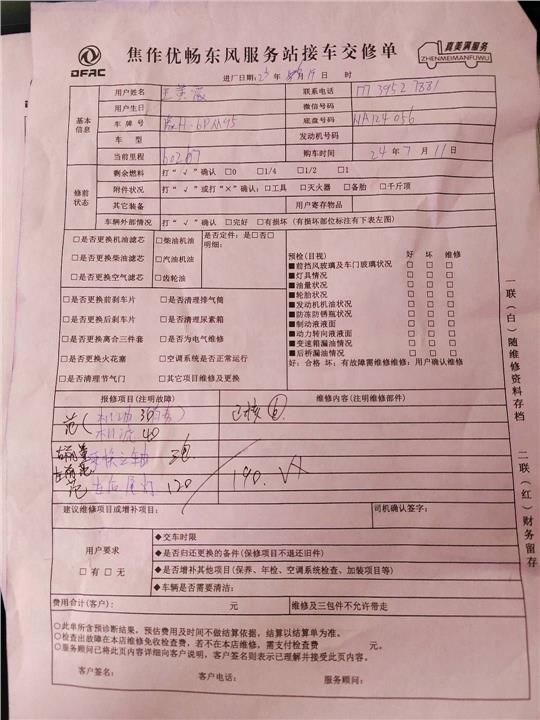 DFAC
焦作优畅东风服务站接车交修单
真美满服务
ZHENMEIMANFUWU
进厂日期: 年 月19日 时
基本信息
用户姓名 联系电话
用户生日 微信号码
车牌号 底盘号码 NA124056
车型 发动机号码
当前里程 60267 购车时间 24年7月11日
修前状态
剩余燃料 打“√”确认 □0 □1/4 □1/2 □1
附件状况 打“√”或打“×”确认:□工具 □灭火器 □备胎 □千斤顶
其它装备 用户寄存物品
车辆外部情况 打“√”确认 □完好 □有损坏(有损坏部位标注有下表左图)
□是否更换机油滤芯 □柴油机油 是否定件:是□否□
明细:
□是否更换柴油滤芯 □汽油机油
□是否更换空气滤芯 □齿轮油
□是否更换前刹车片 □是否清理排气筒
□是否更换后刹车片 □是否清理尿素箱
□是否更换离合三件套 □是否为电气维修
□是否更换火花塞 □空调系统是否正常运行
□是否清理节气门 □其它项目维修及更换
预检(目视) 好 坏 维修
■前挡风玻璃及车门玻璃状况 □ □ □
■灯具情况 □ □ □
■油量状况 □ □ □
■轮胎状况 □ □ □
■发动机机油状况 □ □ □
■防冻防锈瓶状况 □ □ □
■制动液液面 □ □ □
■动力转向液液面 □ □ □
■变速箱漏油情况 □ □ □
■后桥漏油情况 □ □ □
好:合格 坏:有故障需维修维修:用户确认维修
报修项目(注明故障) 维修内容(注明维修部件)
机油
机滤 40
120
190.
建议维修项目或增补项目: 司机确认签字:
用户要求
□有□无
◆交车时限
◆是否归还更换的备件(保修项目不退还旧件)
◆是否增补其他项目(保养、年检、空调系统检查、加装项目等)
◆车辆是否需要清洁:
费用合计(客户): 元 维修及三包件不允许带走
○此单所含预诊断结果,预估费用及时间不做结算依据,结算以结算单为准。
○检查出故障在本店维修免收检查费,若不在本店维修,需支付检查费 元。
○服务顾问已将此页内容详细向客户说明,客户签名则表示已理解并接受此页内容。
客户签名: 客户电话: 服务顾问:
一联(白)随维修资料存档
二联(红)财务留存